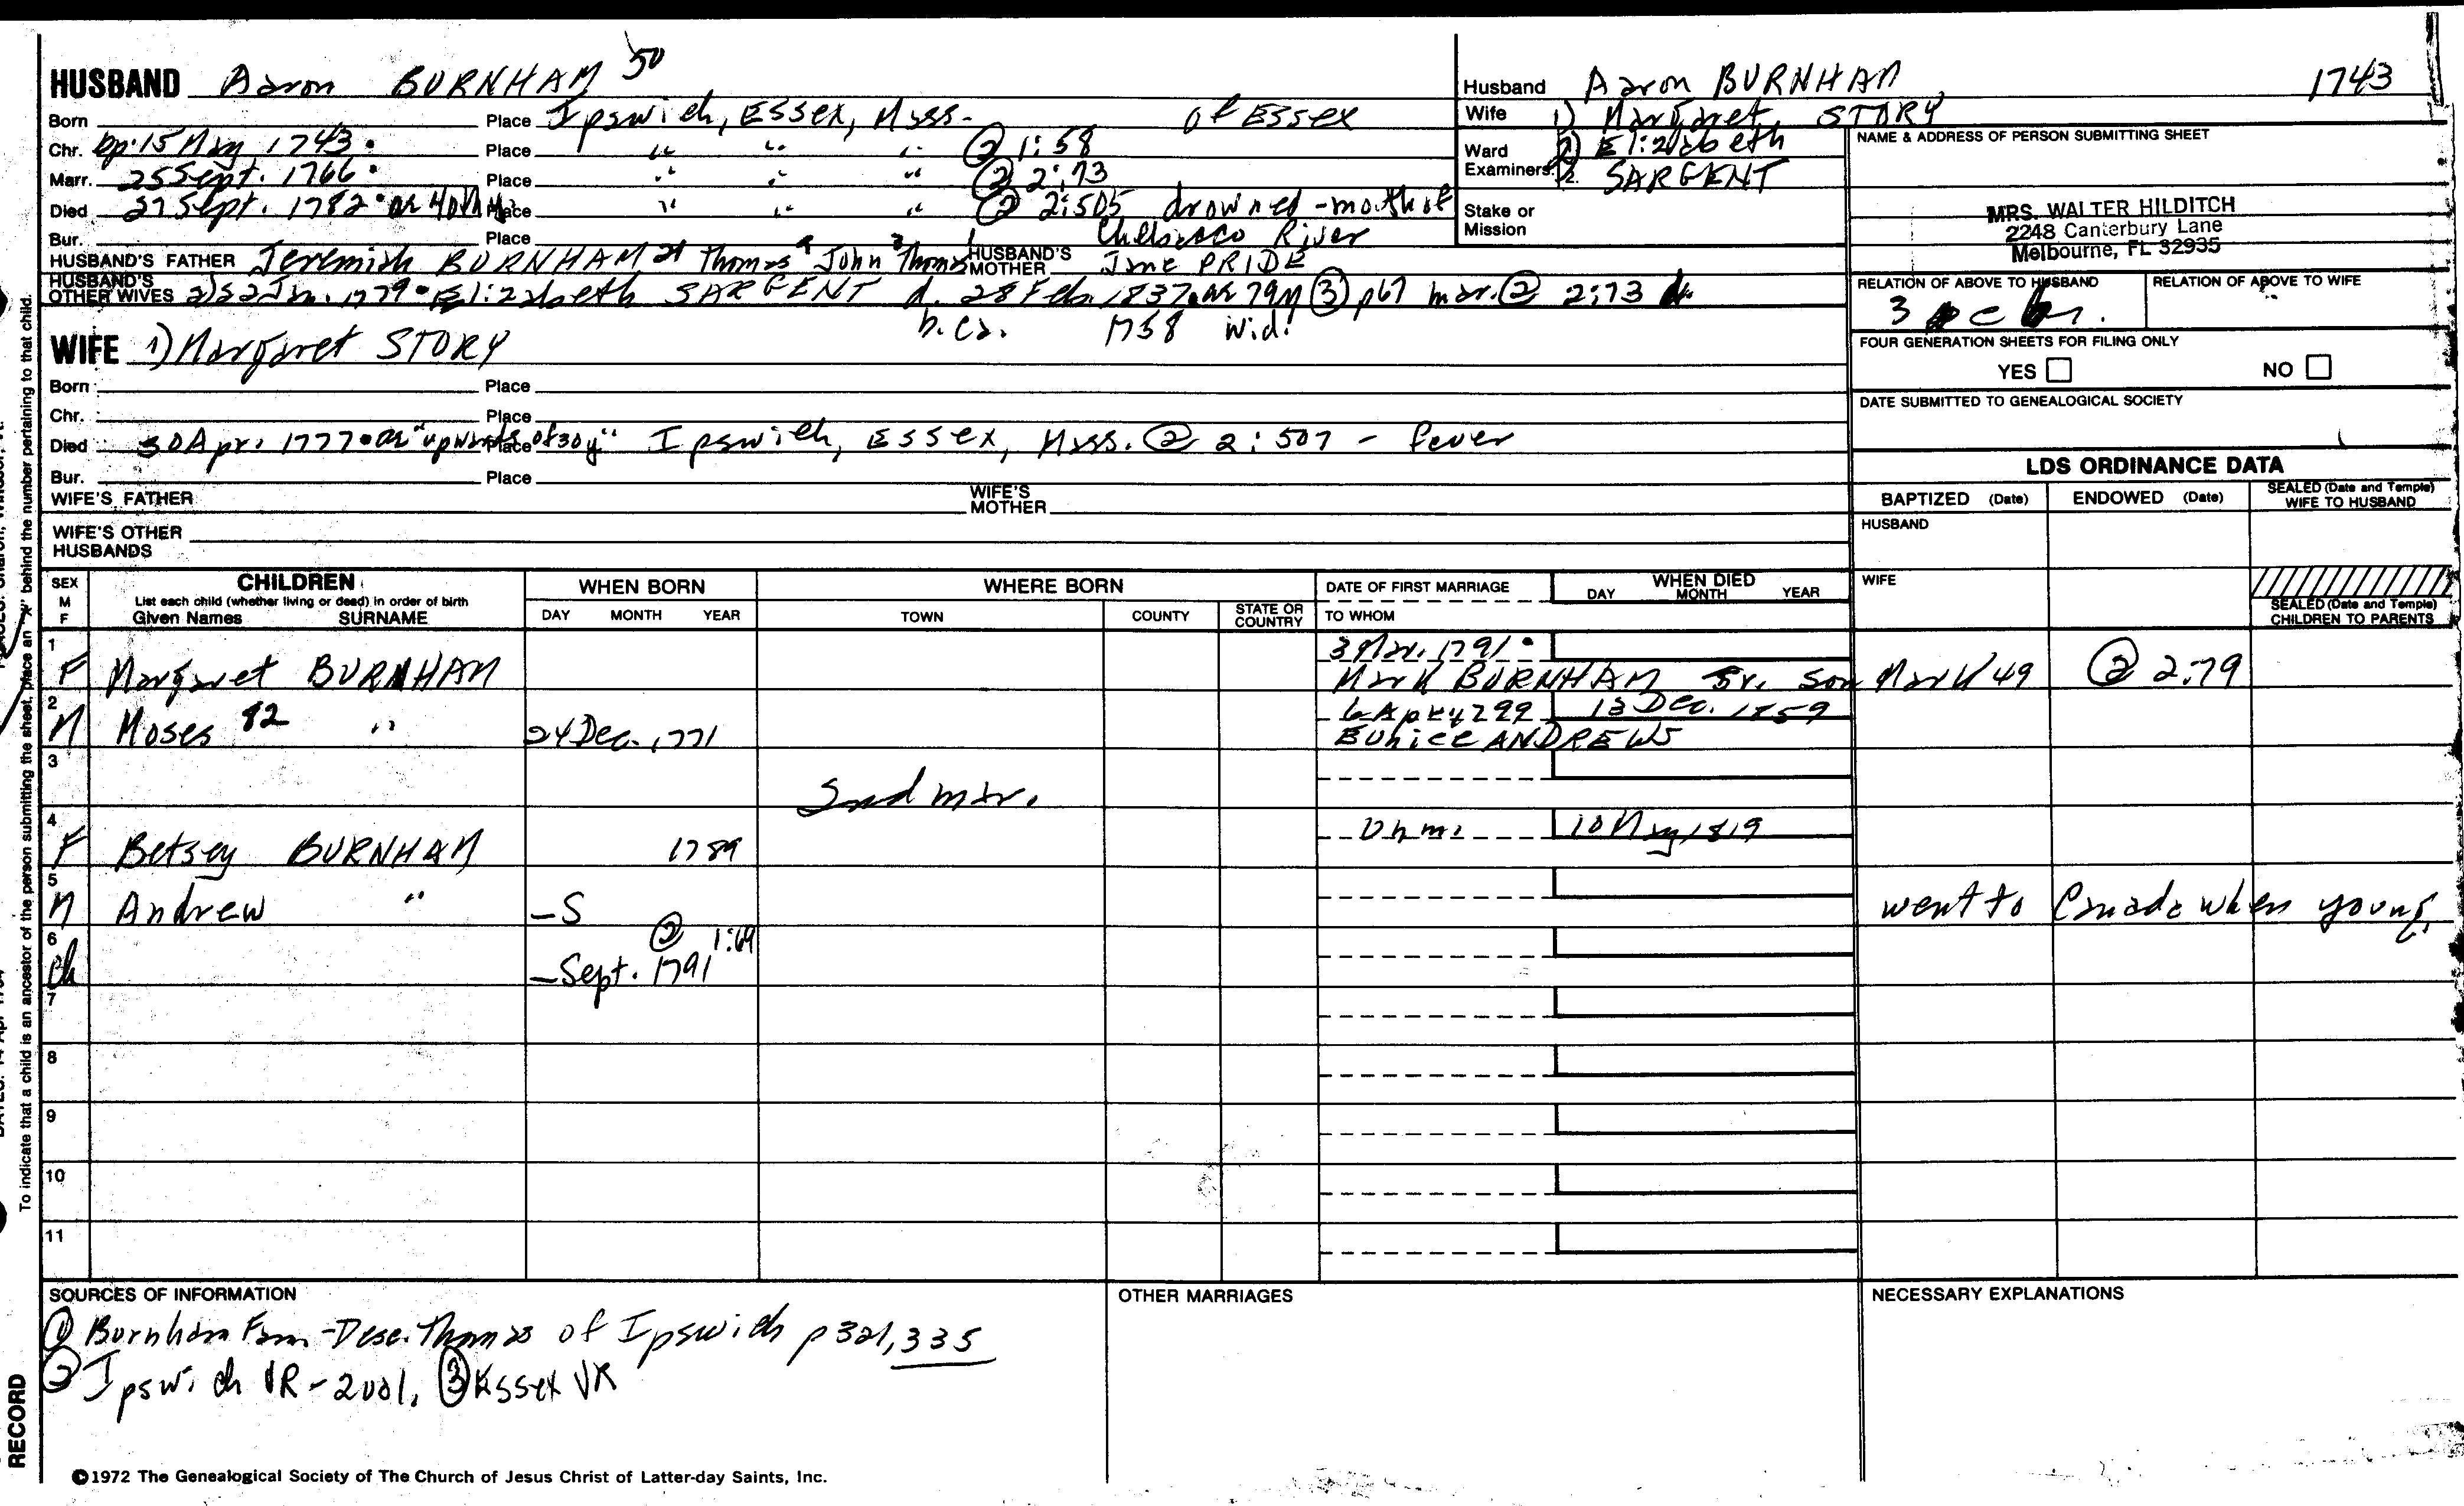 HUSBAND Aaron BURNHAM 50
Born Place Ipswich, Essex, Mass. of Essex
Chr. bp. 15 May 1743. Place " " " ② 1:58
Marr. 25 Sept. 1766. Place " " " ② 2:73
Died 27 Sept. 1782. ae 40 Place " " " ② 2:505 drowned - mouth of
Bur. Place River
HUSBAND'S FATHER Jeremiah BURNHAM Thomas 4 John 3 Thomas HUSBAND'S MOTHER Jane PRIDE
HUSBAND'S OTHER WIVES 2) 1779. Elizabeth SARGENT d. 28 Feb. 1837. ae 79y ③ p67 mar. ② 2:73
b. ca. 1758 wid.
WIFE 1) Margaret STORY
Born Place
Chr. Place
Died 30 Apr. 1777. ae "upwards of 30y" Place Ipswich, Essex, Mass. ② 2:507 - fever
Bur. Place
WIFE'S FATHER WIFE'S MOTHER
WIFE'S OTHER HUSBANDS
Husband Aaron BURNHAM 1743
Wife 1) Margaret STORY
Ward 2) Elizabeth
Examiners: 2. SARGENT
Stake or Mission
NAME & ADDRESS OF PERSON SUBMITTING SHEET
MRS. WALTER HILDITCH
2248 Canterbury Lane
Melbourne, FL 32935
RELATION OF ABOVE TO HUSBAND RELATION OF ABOVE TO WIFE
FOUR GENERATION SHEETS FOR FILING ONLY
YES NO
DATE SUBMITTED TO GENEALOGICAL SOCIETY
LDS ORDINANCE DATA
BAPTIZED (Date) ENDOWED (Date) SEALED (Date and Temple) WIFE TO HUSBAND
HUSBAND
WIFE
SEALED (Date and Temple) CHILDREN TO PARENTS
SEX M F
CHILDREN
List each child (whether living or dead) in order of birth
Given Names SURNAME
WHEN BORN
DAY MONTH YEAR
WHERE BORN
TOWN COUNTY STATE OR COUNTRY
DATE OF FIRST MARRIAGE
TO WHOM
WHEN DIED
DAY MONTH YEAR
1 3 Mar. 1791.
F Margaret BURNHAM Mark BURNHAM Sr. son Mark 49 ② 2:79
2 13 Dec. 1859
M Moses 82 " 24 Dec. 1771 Eunice ANDREWS
3
2nd mar.
4 Unm. 10 May 1819
F Betsey BURNHAM 1789
5
M Andrew " -S went to Canada when young.
6 ② 1:69
ch -Sept. 1791
7
8
9
10
11
SOURCES OF INFORMATION
① Burnham Fam - Desc. Thomas of Ipswich p 321, 335
② Ipswich VR - 2vol. ③ Essex VR
OTHER MARRIAGES
NECESSARY EXPLANATIONS
©1972 The Genealogical Society of The Church of Jesus Christ of Latter-day Saints, Inc.
To indicate that a child is an ancestor of the person submitting the sheet, place an "X" behind the number pertaining to that child.
RECORD